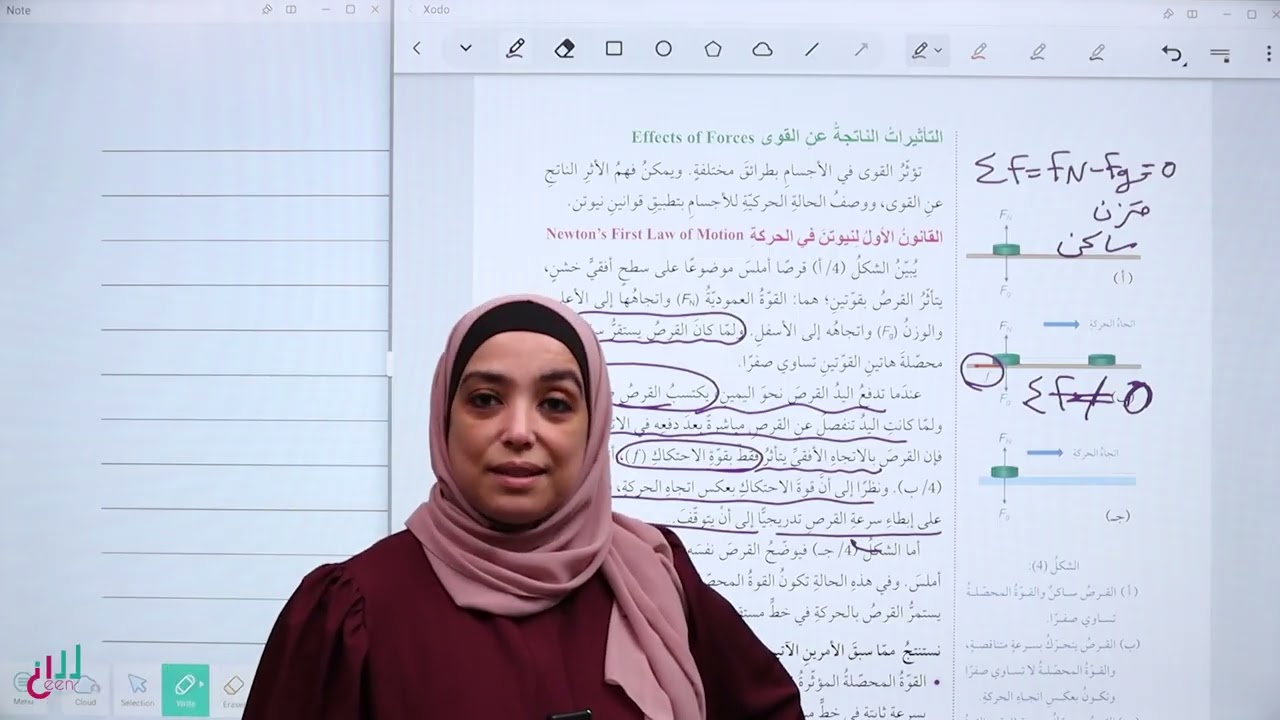 Note
Xodo
التأثيراتُ الناتجةُ عن القوى Effects of Forces
تؤثّرُ القوى في الأجسامِ بطرائقَ مختلفةٍ. ويمكنُ فهمُ الأثرِ الناتجِ
عنِ القوى، ووصفُ الحالةِ الحركيّةِ للأجسامِ بتطبيقِ قوانينِ نيوتن.
القانونُ الأولُ لنيوتنَ في الحركةِ Newton's First Law of Motion
يُبيّنُ الشكلُ (4/ أ) قرصًا أملسَ موضوعًا على سطحٍ أفقيٍّ خشنٍ،
يتأثّرُ القرصُ بقوّتينِ؛ هما: القوّةُ العموديّةُ (FN) واتجاهُها إلى الأعلى
والوزنُ (Fg) واتجاهُه إلى الأسفلِ. ولمّا كانَ القرصُ يستقرُّ
محصّلةَ هاتينِ القوّتينِ تساوي صفرًا.
عندَما تدفعُ اليدُ القرصَ نحوَ اليمينِ يكتسبُ القرصُ
ولمّا كانتِ اليدُ تنفصلُ عنِ القرصِ مباشرةً بعدَ دفعِه في
فإن القرصَ بالاتجاهِ الأفقيِّ يتأثرُ فقطْ بقوّةِ الاحتكاكِ (f)
(4/ ب). ونظرًا إلى أنَّ قوةَ الاحتكاكِ بعكسِ اتجاهِ الحركةِ،
على إبطاءِ سرعةِ القرصِ تدريجيًّا إلى أنْ يتوقّفَ.
أما الشكلُ (4/ جـ) فيوضّحُ القرصَ نفسَه
أملسَ. وفي هذِهِ الحالةِ تكونُ القوةُ
يستمرُّ القرصُ بالحركةِ في خطٍّ
نستنتجُ ممّا سبقَ الأمرينِ
• القوّةُ المحصّلةُ
بسرعةٍ ثابتةٍ في خطٍّ
Σf = fN - fg = 0
متزن
ساكن
FN
Fg
(أ)
FN
اتجاهُ الحركةِ
f
Fg
Σf ≠ 0
FN
اتجاهُ الحركةِ
Fg
(جـ)
الشكلُ (4):
(أ) القرصُ ساكنٌ والقوّةُ المحصّلةُ
تساوي صفرًا.
(ب) القرصُ يتحركُ بسرعةٍ متناقصةٍ،
والقوةُ المحصلةُ لا تساوي صفرًا
وتكونُ بعكسِ اتجاهِ الحركةِ.
Menu
Cloud
Selection
Write
Eraser